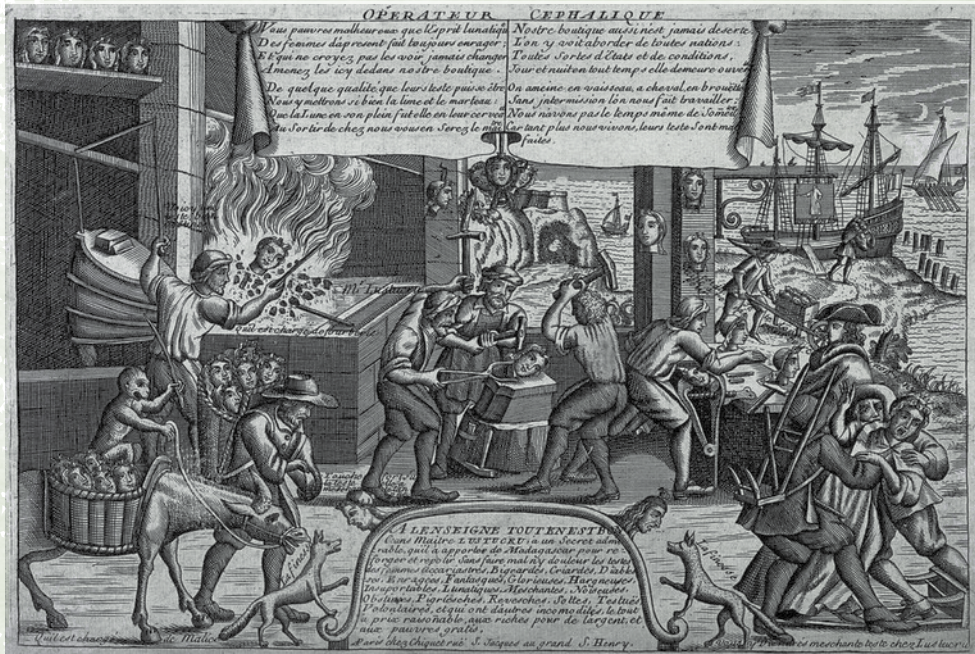 OPERATEUR CEPHALIQUE
Vous pauvres malheureux que l'Esprit lunatiqu
Des femmes d'apresent fait toujours enrager;
Et qui ne croyez pas les voir jamais changer
Amenez les icy dedans nostre boutique.
De quelque qualité que leurs teste puisse être
Nous y mettrons si bien la lime et le marteau:
Que la Lune en son plein fut elle en leur cerveau
Au Sortir de chez nous vous en Serez le maître
Nostre boutique aussi n'est jamais deserte
L'on y voit aborder de toutes nations:
Toutes Sortes d'Etats et de conditions,
Jour et nuit en tout temps elle demeure ouver
On ameine en vaisseau, a cheval, en brouëtte
Sans jntermission l'on nous fait travailler;
Nous n'avons pas le temps même de
Car tant plus nous vivons, leurs teste Sont mal
faites.
Mr Lustucru
qu'il est chargé de
A LENSEIGNE TOUT EN EST BON
Ceans Maître LUSTUCRU a un Secret admi-
rable, qu'il a apporter de Madagascar pour re-
forger et repolir Sans faire mal n'y douleur les testes
des femmes Accariastres, Bigeardes, Criardes, Diable
ses, Enragées, Fantasques, Glorieuses, Hargneuses,
Insuportables, Lunatiques, Meschantes, Noiseuses,
Obstinees, Pigriesches, Revesches, Sottes, Testuës
Volontaires, et qui ont d'autres incomodités, le tout
a prix raisonable, aux riches pour de l'argent, et
aux pauvres gratis.
la finesse
Qu'il est chargé de Malice
A Paris chez Chiquet ruë S. Jacques au grand S. Henry.
meschante teste chez Lustucru